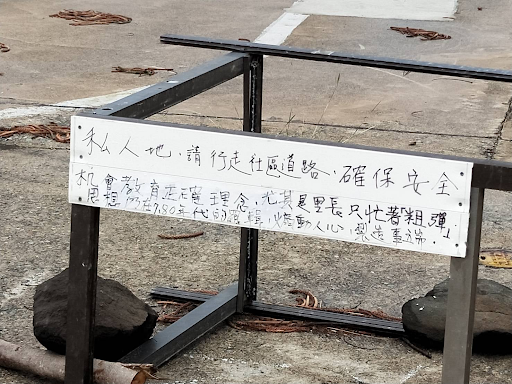 私人地、請行走社區道路、確保安全
機會教育正確理念，尤其是里長只忙著粗殫，
思想仍在7,80年代的，煽動人心，製造事端.